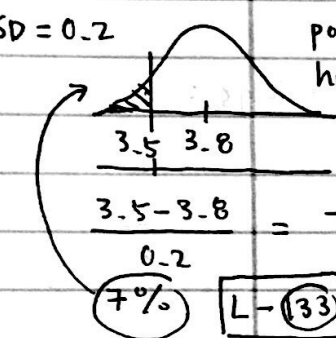 SD = 0.2
po
h
3.5 3.8
3.5-3.8
0.2
=
7%
L - 133